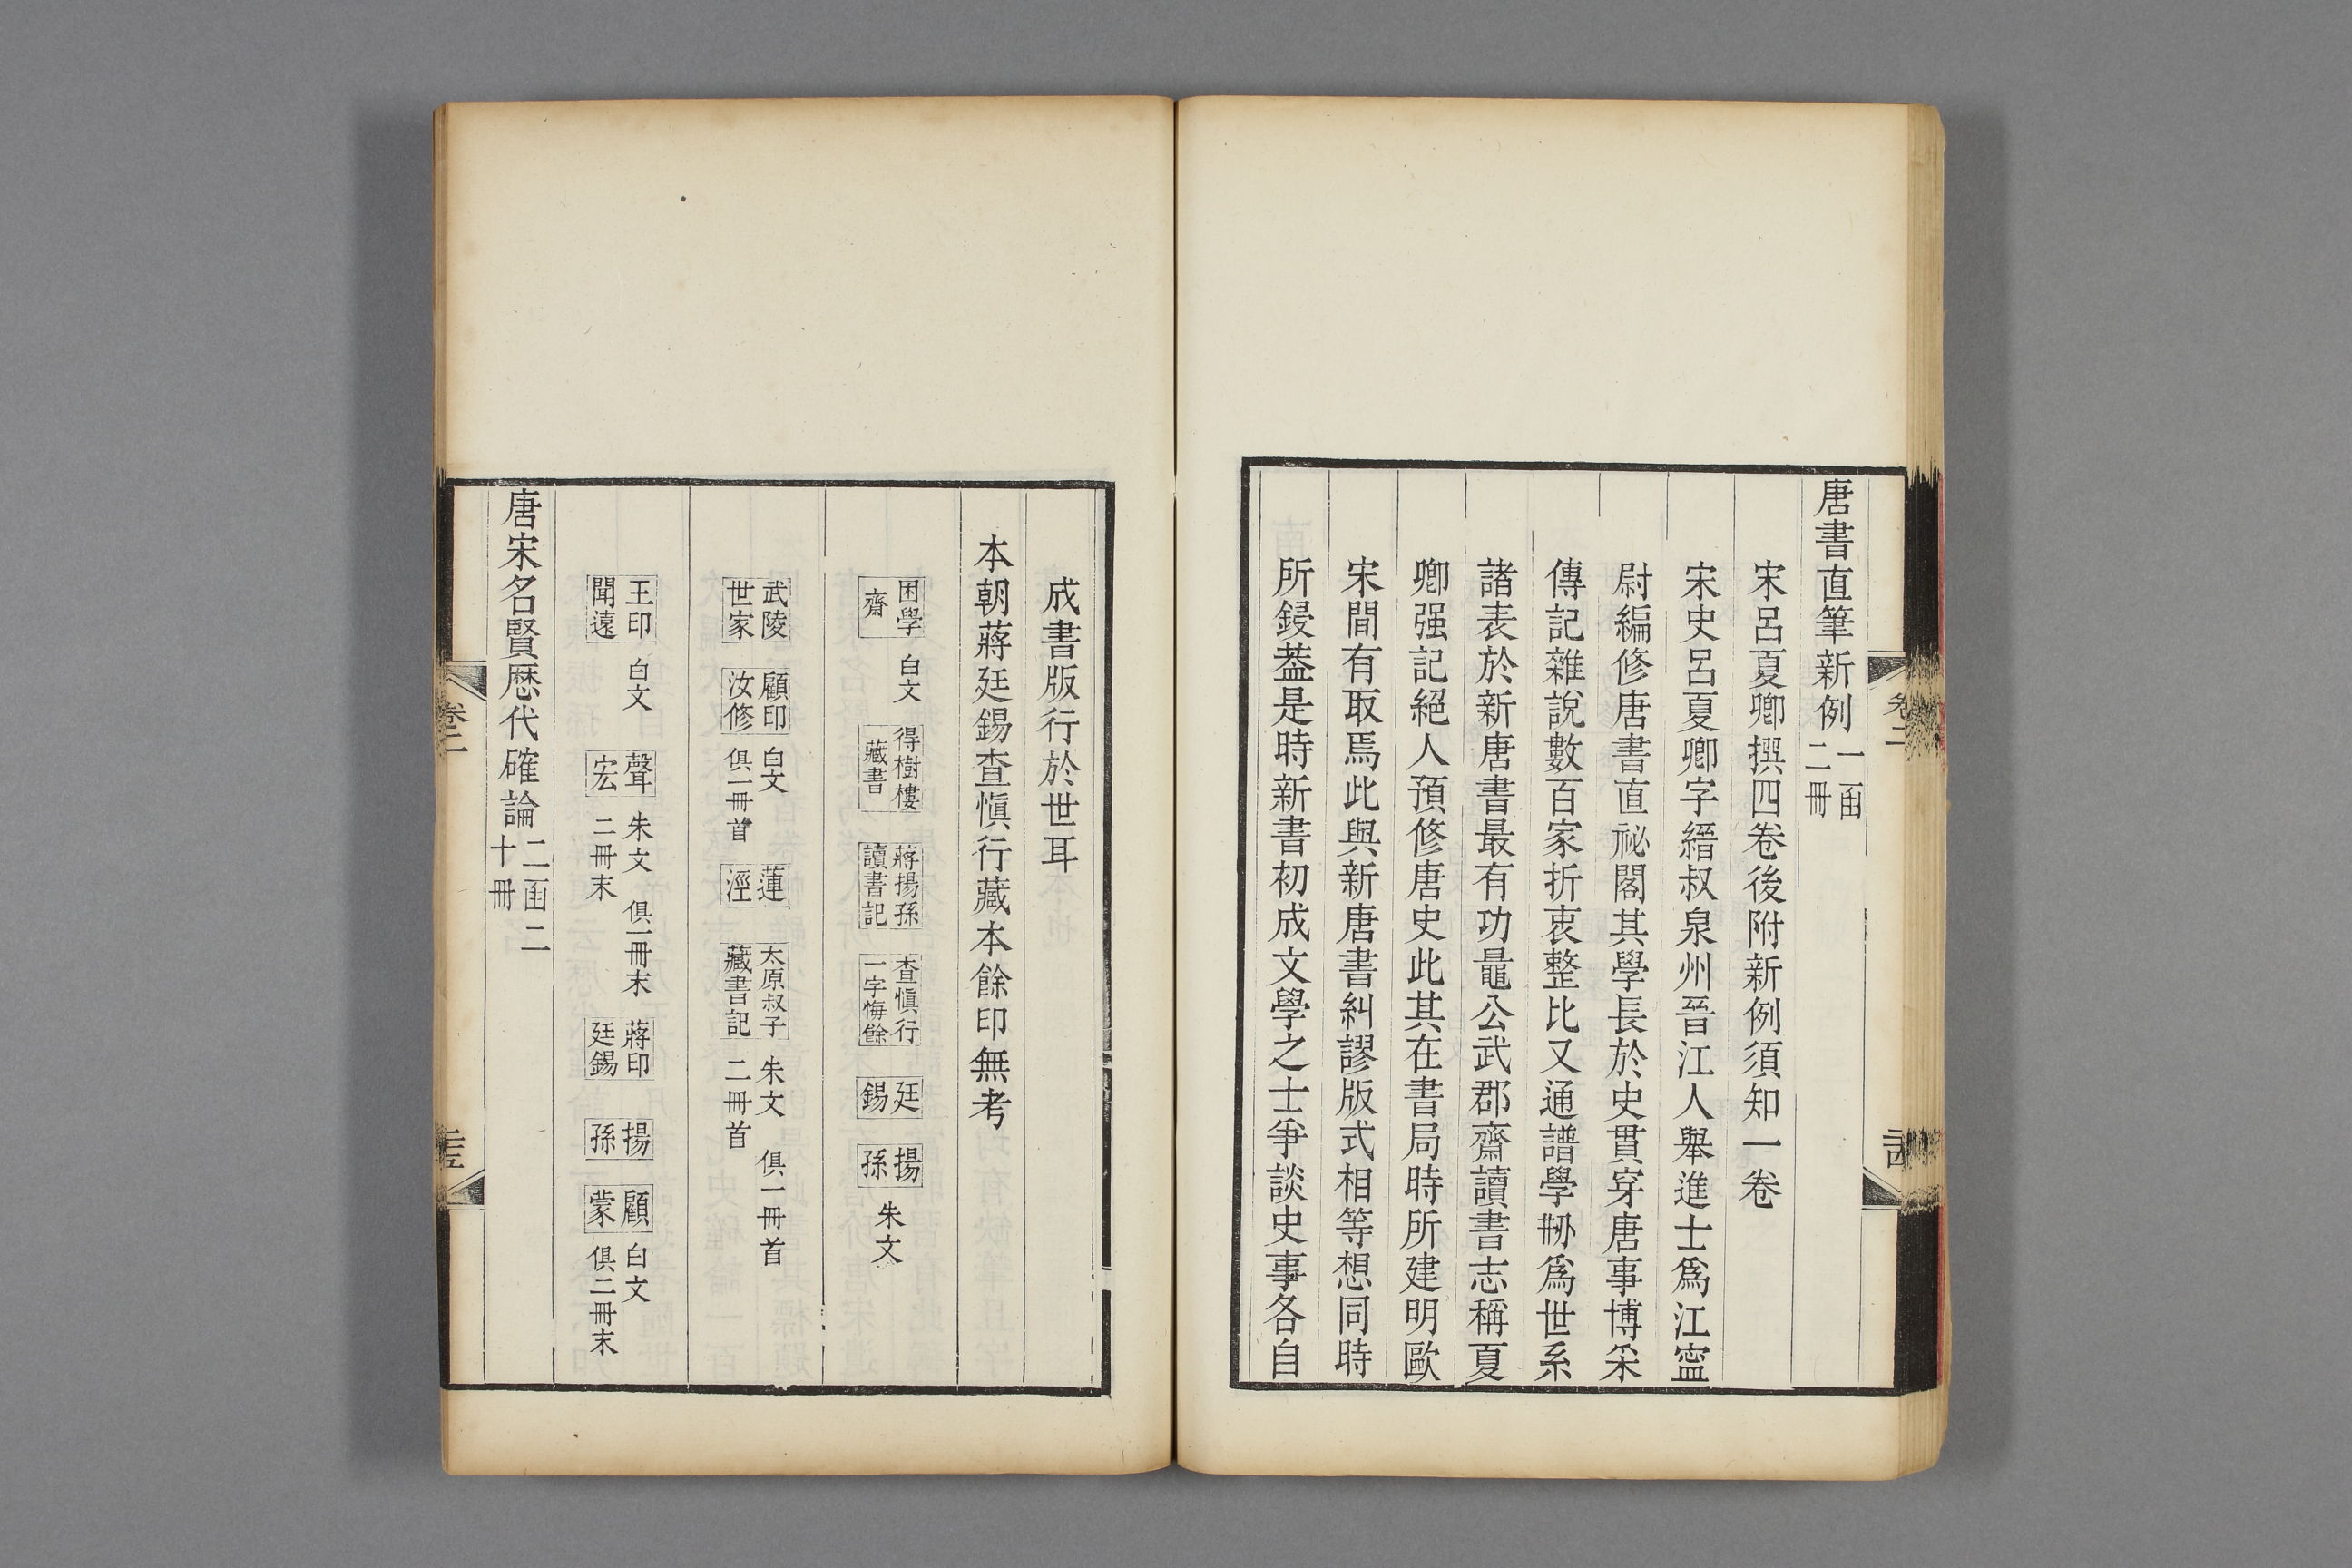 唐書直筆新例一函二冊
宋呂夏卿撰四卷後附新例須知一卷
宋史呂夏卿字縉叔泉州晉江人舉進士爲江寍
尉編修唐書直祕閣其學長於史貫穿唐事博采
傳記雜說數百家折衷整比又通譜學刱爲世系
諸表於新唐書最有功鼂公武郡齋讀書志稱夏
卿强記絕人預修唐史此其在書局時所建明歐
宋間有取焉此與新唐書糾謬版式相等想同時
所鋟葢是時新書初成文學之士爭談史事各自
卷二
成書版行於世耳
本朝蔣廷錫查愼行藏本餘印無考
困學齋 白文 得樹樓藏書 蔣揚孫讀書記 查愼行一字悔餘 廷錫 揚孫 朱文
武陵世家 顧印汝修 白文俱一冊首 蓮涇 太原叔子藏書記 朱文二冊首 俱一冊首
王印聞遠 白文 聲宏 朱文二冊末 俱一冊末 蔣印廷錫 揚孫 顧蒙 白文俱二冊末
唐宋名賢歷代確論二函二十冊
卷二